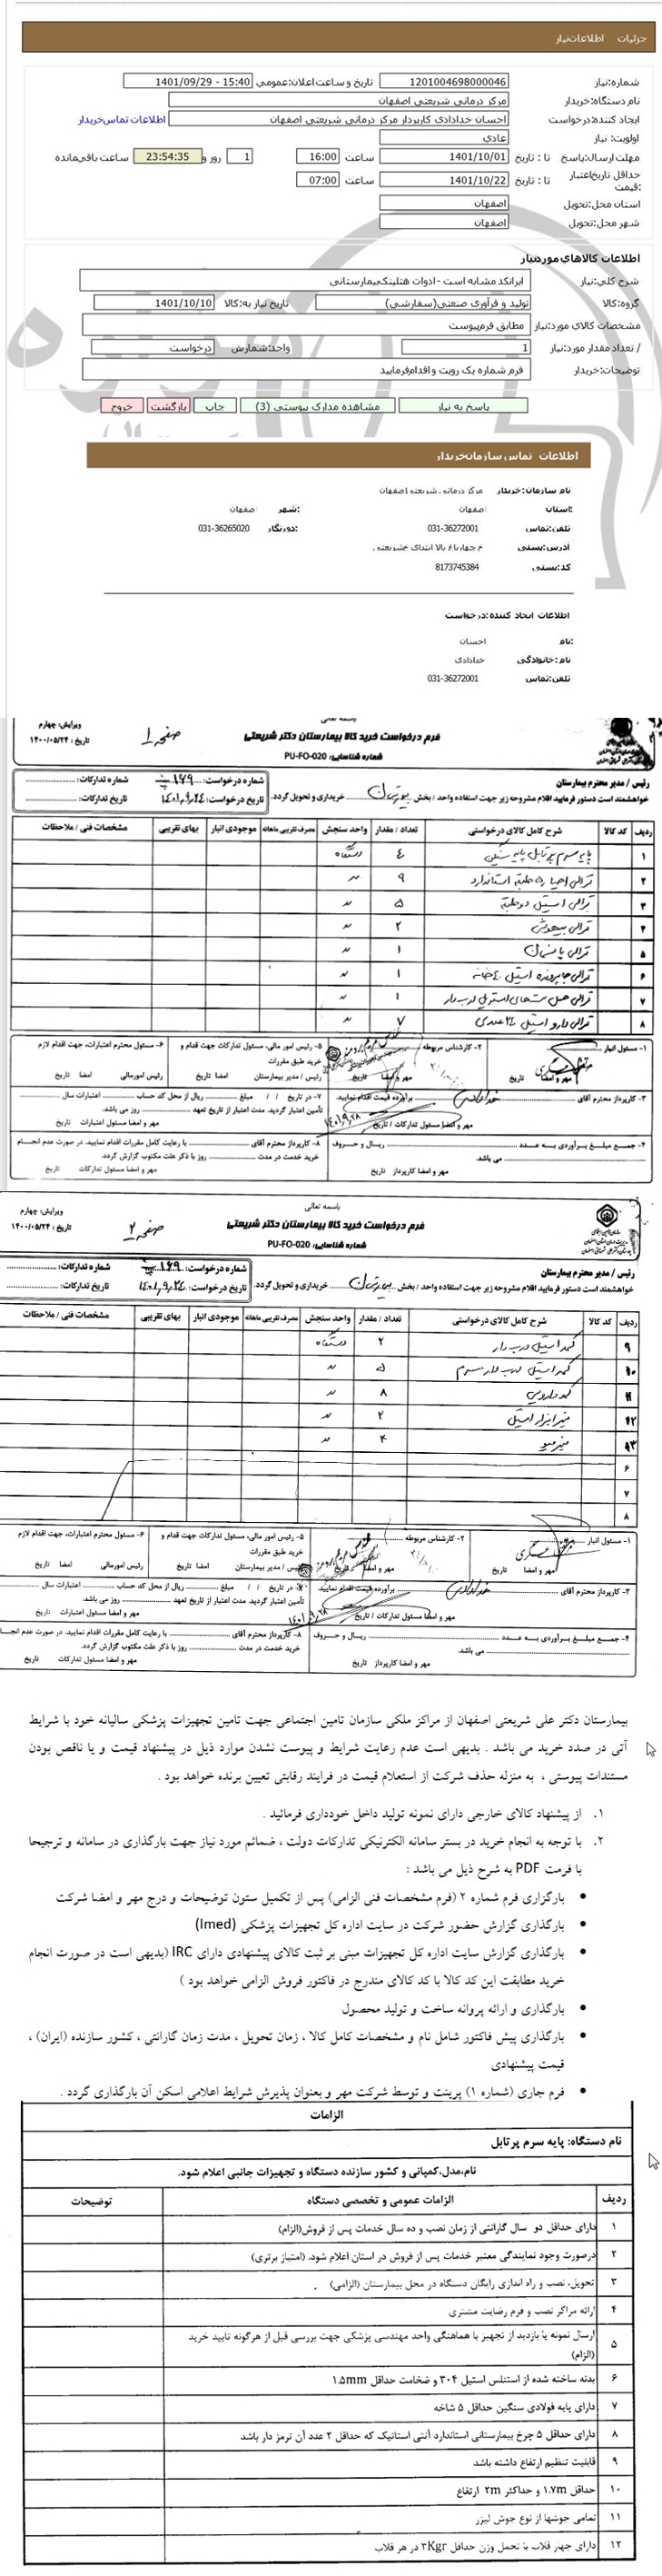 جزئیات اطلاعات نیاز
شماره نیاز: 1201004698000046 تاریخ و ساعت اعلان عمومی: 1401/09/29 - 15:40
نام دستگاه خریدار: مرکز درمانی شریعتی اصفهان
ایجاد کننده درخواست: احسان خدادادی کارپرداز مرکز درمانی شریعتی اصفهان اطلاعات تماس خریدار
اولویت نیاز: عادی
مهلت ارسال پاسخ: تا تاریخ: 1401/10/01 ساعت 16:00 1 روز و 23:54:35 ساعت باقی مانده
حداقل تاریخ اعتبار قیمت: تا تاریخ: 1401/10/22 ساعت 07:00
استان محل تحویل: اصفهان
شهر محل تحویل: اصفهان
اطلاعات کالاهای موردنیاز
شرح کلی نیاز: ایرانکد مشابه است - ادوات هتلینگ بیمارستانی
گروه کالا: تولید و فرآوری صنعتی(سفارشی) تاریخ نیاز به کالا: 1401/10/10
مشخصات کالای مورد نیاز: مطابق فرم پیوست
تعداد / مقدار مورد نیاز: 1 واحد شمارش: درخواست
توضیحات خریدار: فرم شماره یک رویت و اقدام فرمایید
پاسخ به نیاز مشاهده مدارک پیوستی (3) چاپ بازگشت خروج
اطلاعات تماس سازمان خریدار
نام سازمان خریدار: مرکز درمانی شریعتی اصفهان
استان: اصفهان شهر: اصفهان
تلفن تماس: 031-36272001 دورنگار: 031-36265020
آدرس پستی: خ چهارباغ بالا ابتدای خ شریعتی
کد پستی: 8173745384
اطلاعات ایجاد کننده درخواست
نام: احسان
نام خانوادگی: خدادادی
تلفن تماس: 031-36272001
باسمه تعالی
فرم درخواست خرید کالا بیمارستان دکتر شریعتی
شماره شناسایی: PU-FO-020
ویرایش: چهارم
تاریخ: ۱۴۰۰/۰۵/۲۴
صفحه ۱
رئیس / مدیر محترم بیمارستان
خواهشمند است دستور فرمایید اقلام مشروحه زیر جهت استفاده واحد / بخش خریداری و تحویل گردد.
شماره درخواست: ۱۶۹ شماره تدارکات:
تاریخ درخواست: ۱۴۰۱/۹/۲۴ تاریخ تدارکات:
ردیف کد کالا شرح کامل کالای درخواستی تعداد / مقدار واحد سنجش مصرف تقریبی ماهانه موجودی انبار بهای تقریبی مشخصات فنی / ملاحظات
۱ پایه سرم پرتابل پایه سنگین ٤ دستگاه
۲ ترالی احیا ۵ طبقه استاندارد ۹ "
۳ ترالی استیل دو طبقه ۵ "
۴ ترالی بیهوشی ۲ "
۵ ترالی پانسمان ۱ "
۶ ترالی جا پرونده استیل ۴۰ خانه ۱ "
۷ ترالی حمل ست های استریل درب دار ۱ "
۸ ترالی دارو استیل ۲۴ عددی ۷ "
۱- مسئول انبار مهر و امضا تاریخ
۲- کارشناس مربوطه مهر و امضا تاریخ
۵- رئیس امور مالی، مسئول تدارکات جهت اقدام و خرید طبق مقررات
رئیس / مدیر بیمارستان امضا تاریخ
۶- مسئول محترم اعتبارات، جهت اقدام لازم
رئیس امورمالی امضا تاریخ
۳- کارپرداز محترم آقای خدادادی برآورده قیمت اقدام نمایید.
مهر و امضا مسئول تدارکات / تاریخ ۱۴۰۱/۹/۲۸
۷- در تاریخ / / مبلغ ریال از محل کد حساب اعتبارات سال
تأمین اعتبار گردید. مدت اعتبار از تاریخ تعهد روز می باشد.
مهر و امضا مسئول اعتبارات تاریخ
۴- جمع مبلغ برآوردی به عدد ریال و حروف می باشد.
مهر و امضا کارپرداز تاریخ
۸- کارپرداز محترم آقای با رعایت کامل مقررات اقدام نمایید. در صورت عدم انجام
خرید خدمت در مدت روز با ذکر علت مکتوب گزارش گردد.
مهر و امضا مسئول تدارکات تاریخ
باسمه تعالی
فرم درخواست خرید کالا بیمارستان دکتر شریعتی
شماره شناسایی: PU-FO-020
ویرایش: چهارم
تاریخ: ۱۴۰۰/۰۵/۲۴
صفحه ۲
رئیس / مدیر محترم بیمارستان
خواهشمند است دستور فرمایید اقلام مشروحه زیر جهت استفاده واحد / بخش خریداری و تحویل گردد.
شماره درخواست: ۱۶۹ شماره تدارکات:
تاریخ درخواست: ۱۴۰۱/۹/۲۴ تاریخ تدارکات:
ردیف کد کالا شرح کامل کالای درخواستی تعداد / مقدار واحد سنجش مصرف تقریبی ماهانه موجودی انبار بهای تقریبی مشخصات فنی / ملاحظات
۹ کمد استیل درب دار ۲ دستگاه
۱۰ کمد استیل درب دار سرم ۵ "
۱۱ کمد دارویی ۸ "
۱۲ میز ابزار استیل ۲ "
۱۳ میز میو ۴ "
۶
۷
۸
۱- مسئول انبار مهر و امضا تاریخ
۲- کارشناس مربوطه مهر و امضا تاریخ
۵- رئیس امور مالی، مسئول تدارکات جهت اقدام و خرید طبق مقررات
رئیس / مدیر بیمارستان امضا تاریخ
۶- مسئول محترم اعتبارات، جهت اقدام لازم
رئیس امورمالی امضا تاریخ
۳- کارپرداز محترم آقای خدادادی برآورده قیمت اقدام نمایید.
مهر و امضا مسئول تدارکات / تاریخ ۱۴۰۱/۹/۲۸
۷- در تاریخ / / مبلغ ریال از محل کد حساب اعتبارات سال
تأمین اعتبار گردید. مدت اعتبار از تاریخ تعهد روز می باشد.
مهر و امضا مسئول اعتبارات تاریخ
۴- جمع مبلغ برآوردی به عدد ریال و حروف می باشد.
مهر و امضا کارپرداز تاریخ
۸- کارپرداز محترم آقای با رعایت کامل مقررات اقدام نمایید. در صورت عدم انجام
خرید خدمت در مدت روز با ذکر علت مکتوب گزارش گردد.
مهر و امضا مسئول تدارکات تاریخ
بیمارستان دکتر علی شریعتی اصفهان از مراکز ملکی سازمان تامین اجتماعی جهت تامین تجهیزات پزشکی سالیانه خود با شرایط
آتی در صدد خرید می باشد . بدیهی است عدم رعایت شرایط و پیوست نشدن موارد ذیل در پیشنهاد قیمت و یا ناقص بودن
مستندات پیوستی ، به منزله حذف شرکت از استعلام قیمت در فرایند رقابتی تعیین برنده خواهد بود .
۱. از پیشنهاد کالای خارجی دارای نمونه تولید داخل خودداری فرمائید .
۲. با توجه به انجام خرید در بستر سامانه الکترنیکی تدارکات دولت ، ضمائم مورد نیاز جهت بارگذاری در سامانه و ترجیحا
با فرمت PDF به شرح ذیل می باشد :
• بارگزاری فرم شماره ۲ (فرم مشخصات فنی الزامی) پس از تکمیل ستون توضیحات و درج مهر و امضا شرکت
• بارگذاری گزارش حضور شرکت در سایت اداره کل تجهیزات پزشکی (Imed)
• بارگذاری گزارش سایت اداره کل تجهیزات مبنی بر ثبت کالای پیشنهادی دارای IRC (بدیهی است در صورت انجام
خرید مطابقت این کد کالا با کد کالای مندرج در فاکتور فروش الزامی خواهد بود )
• بارگذاری و ارائه پروانه ساخت و تولید محصول
• بارگذاری پیش فاکتور شامل نام و مشخصات کامل کالا ، زمان تحویل ، مدت زمان گارانتی ، کشور سازنده (ایران) ،
قیمت پیشنهادی
• فرم جاری (شماره ۱) پرینت و توسط شرکت مهر و بعنوان پذیرش شرایط اعلامی اسکن آن بارگذاری گردد .
الزامات
نام دستگاه: پایه سرم پرتابل
نام،مدل،کمپانی و کشور سازنده دستگاه و تجهیزات جانبی اعلام شود.
ردیف الزامات عمومی و تخصصی دستگاه توضیحات
۱ دارای حداقل دو سال گارانتی از زمان نصب و ده سال خدمات پس از فروش(الزام)
۲ درصورت وجود نمایندگی معتبر خدمات پس از فروش در استان اعلام شود. (امتیاز برتری)
۳ تحویل، نصب و راه اندازی رایگان دستگاه در محل بیمارستان (الزامی) .
۴ ارائه مراکز نصب و فرم رضایت مشتری
۵ ارسال نمونه یا بازدید از تجهیز با هماهنگی واحد مهندسی پزشکی جهت بررسی قبل از هرگونه تایید خرید (الزام)
۶ بدنه ساخته شده از استنلس استیل ۳۰۴ و ضخامت حداقل ۱.۵mm
۷ دارای پایه فولادی سنگین حداقل ۵ شاخه
۸ دارای حداقل ۵ چرخ بیمارستانی استاندارد آنتی استاتیک که حداقل ۲ عدد آن ترمز دار باشد
۹ قابلیت تنظیم ارتفاع داشته باشد
۱۰ حداقل ۱.۷m و حداکثر ۲m ارتفاع
۱۱ تمامی جوشها از نوع جوش لیزر
۱۲ دارای چهار قلاب با تحمل وزن حداقل ۳Kgr در هر قلاب